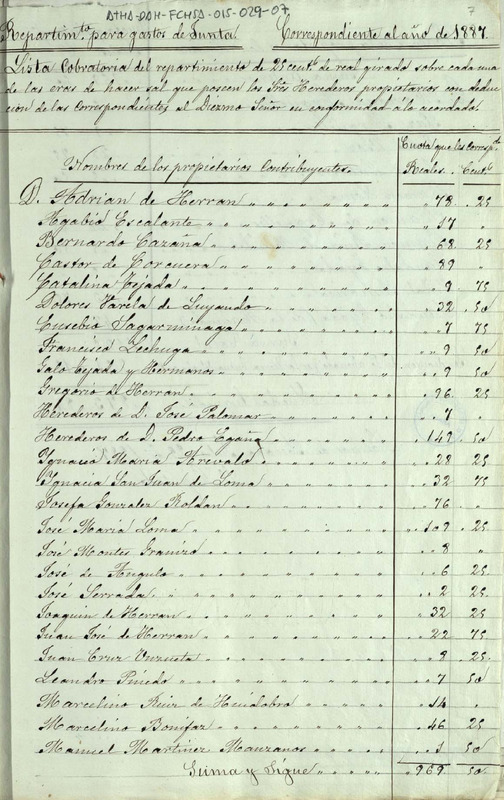 ATHA-DAH-FCHSA-015-029-07
7
Repartim.to para gastos de Junta. Correspondiente al año de 1887.
Lista Cobratoria del repartimiento de 25 cent.s de real girado sobre cada una
de las eras de hacer sal que poseen los Sres Herederos propietarios con deduc
cion de las correspondientes al Diezmo Señor en conformidad á lo acordado.
Cuota que les corresp.de
Nombres de los propietarios Contribuyentes. Reales. Cent.s
D. Adrian de Herran 78 25
Agabio Escalante 17 "
Bernardo Cazana 68 25
Castor de Corcuera 89 "
Catalina Tejada 9 75
Dolores Varela de Luyando 32 50
Eusebio Sagarminaga 7 75
Francisco Lechuga 9 50
Galo Tejada y Hermanos 9 50
Gregorio de Herran 96 25
Herederos de D. José Palomar 7 "
Herederos de D. Pedro Egaña 149 50
Ygnacio Maria Arevalo 28 25
Ygnacia San Juan de Loma 32 75
Josefa Gonzalez Roldan 76 "
José Maria Loma 109 25
José Montes Granizo 8 "
José de Angulo 6 25
José Serrada 2 25
Joaquin de Herran 32 25
Juan José de Herran 22 75
Juan Cruz Unzueta 8 25
Leandro Pinedo 7 50
Marcelino Ruiz de Huidobro 14 "
Marcelino Bonifaz 46 25
Manuel Martinez Manzanos 1 50
Suma y Sigue 969 50